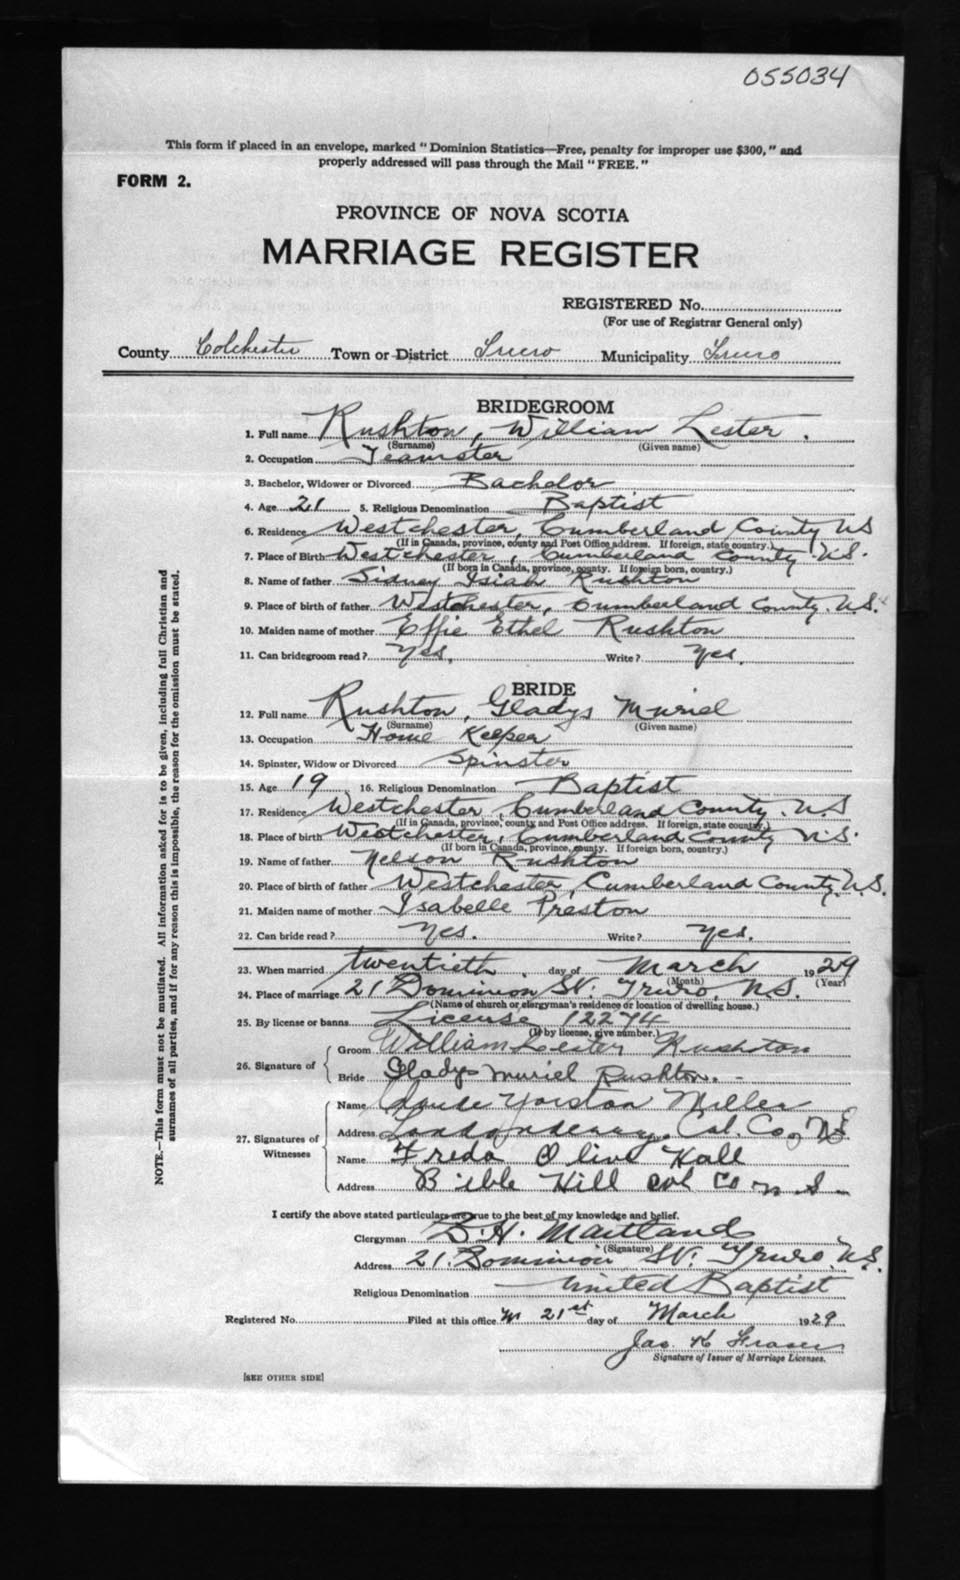 055034
This form if placed in an envelope, marked "Dominion Statistics—Free, penalty for improper use $300," and
properly addressed will pass through the Mail "FREE."
FORM 2.
PROVINCE OF NOVA SCOTIA
MARRIAGE REGISTER
REGISTERED No.
(For use of Registrar General only)
County Colchester Town or District Truro Municipality Truro
BRIDEGROOM
1. Full name Rushton, William Lester.
(Surname) (Given name)
2. Occupation Teamster
3. Bachelor, Widower or Divorced Bachelor
4. Age 21 5. Religious Denomination Baptist
6. Residence Westchester, Cumberland County NS
(If in Canada, province, county and Post Office address. If foreign, state country.)
7. Place of Birth Westchester, Cumberland County N.S.
(If born in Canada, province, county. If foreign born, country.)
8. Name of father Sidney Isiah Rushton
9. Place of birth of father Westchester, Cumberland County. N.S.
10. Maiden name of mother Effie Ethel Rushton
11. Can bridegroom read? Yes. Write? Yes.
BRIDE
12. Full name Rushton, Gladys Muriel
(Surname) (Given name)
13. Occupation Home Keeper
14. Spinster, Widow or Divorced Spinster
15. Age 19 16. Religious Denomination Baptist
17. Residence Westchester, Cumberland County. N.S
(If in Canada, province, county and Post Office address. If foreign, state country.)
18. Place of birth Westchester, Cumberland County N.S.
(If born in Canada, province, county. If foreign born, country.)
19. Name of father Nelson Rushton
20. Place of birth of father Westchester, Cumberland County. N.S.
21. Maiden name of mother Isabelle Preston
22. Can bride read? Yes. Write? Yes.
23. When married twentieth day of March 1929
(Month) (Year)
24. Place of marriage 21 Dominion St. Truro, N.S.
(Name of church or clergyman's residence or location of dwelling house.)
25. By license or banns License 12274
(If by license, give number.)
26. Signature of
Groom William Lester Rushton
Bride Gladys Muriel Rushton.
27. Signatures of Witnesses
Name Yorston Miller
Address Londonderry, Col. Co, NS
Name Freda Olive Hall
Address Bible Hill Col Co N S
I certify the above stated particulars are true to the best of my knowledge and belief.
Clergyman B. H. Maitland
(Signature)
Address 21 Dominion St. Truro. N.S.
Religious Denomination United Baptist
Registered No. Filed at this office 21st day of March 1929
Jas. Fraser
Signature of Issuer of Marriage Licenses.
[SEE OTHER SIDE]
NOTE.—This form must not be mutilated. All information asked for is to be given, including full Christian and
surnames of all parties, and if for any reason this is impossible, the reason for the omission must be stated.